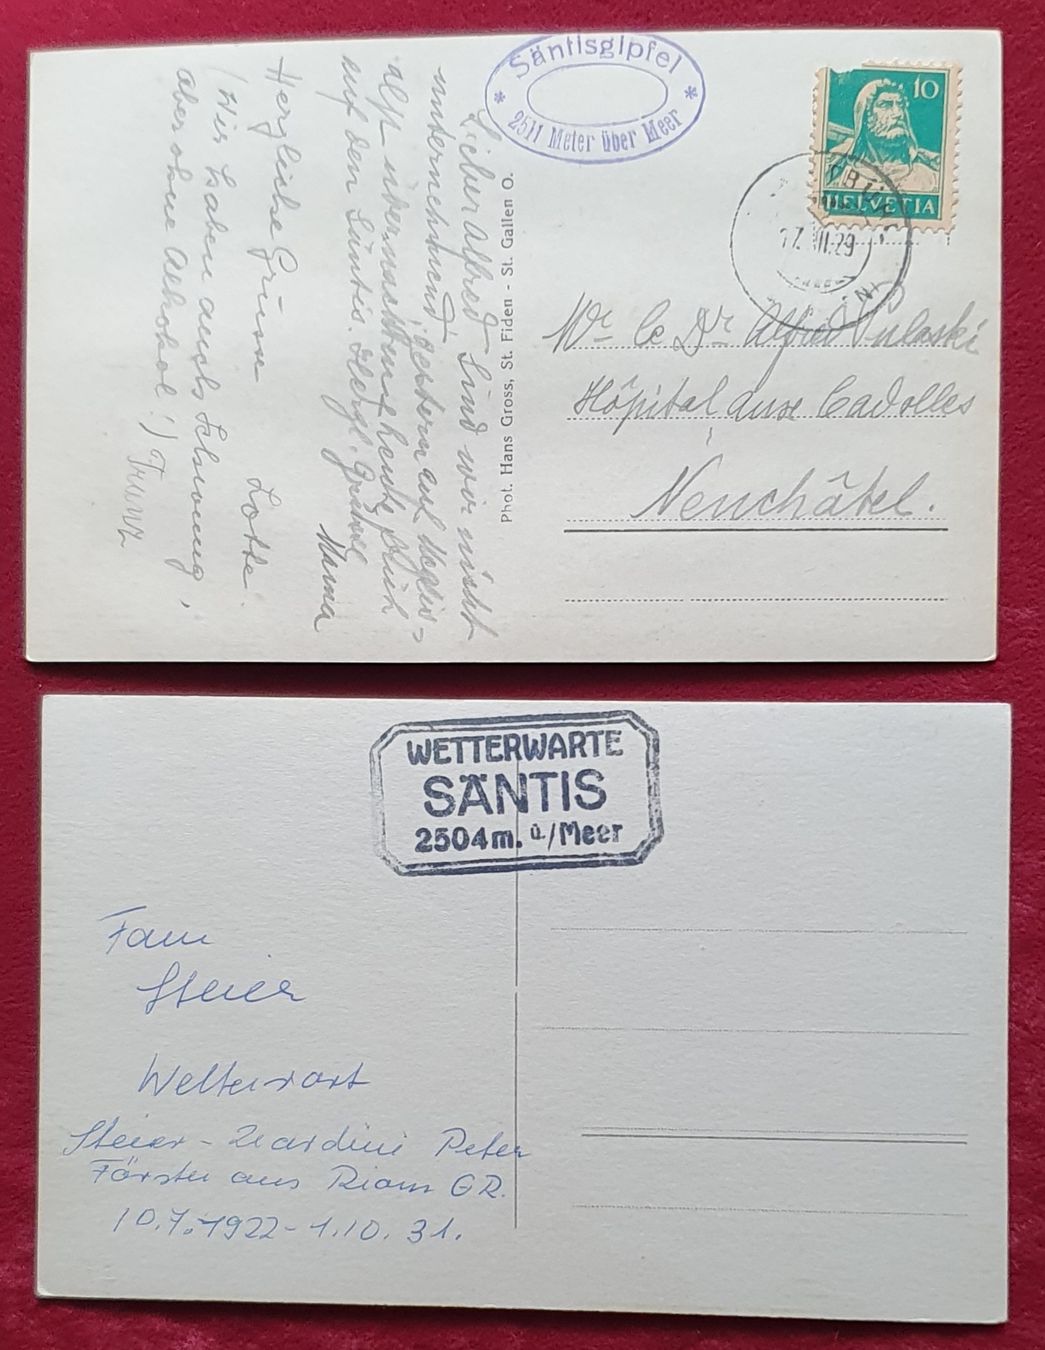 Säntisgipfel
* *
2511 Meter über Meer
10
HELVETIA
17. VII. 29
Lieber Alfred! Sind wir nicht
unternehmend? Gestern auf
Alp übernachtet und heute früh
auf den Säntis. Herzl. Grüsse
Mama
Herzliche Grüsse
Lotte.
(Wir haben auch Schwung,
aber ohne Alkohol!) Franz
Phot. Hans Gross, St. Fiden - St. Gallen O.
Mr le Dr Alfred Pulaski
Hôpital aux Cadolles
Neuchâtel.
WETTERWARTE
SÄNTIS
2504 m. ü./Meer
Fam
Steier
Wetterwart
Steier - Peter
Förster aus Riom GR.
10.7.1922 - 1.10.31.